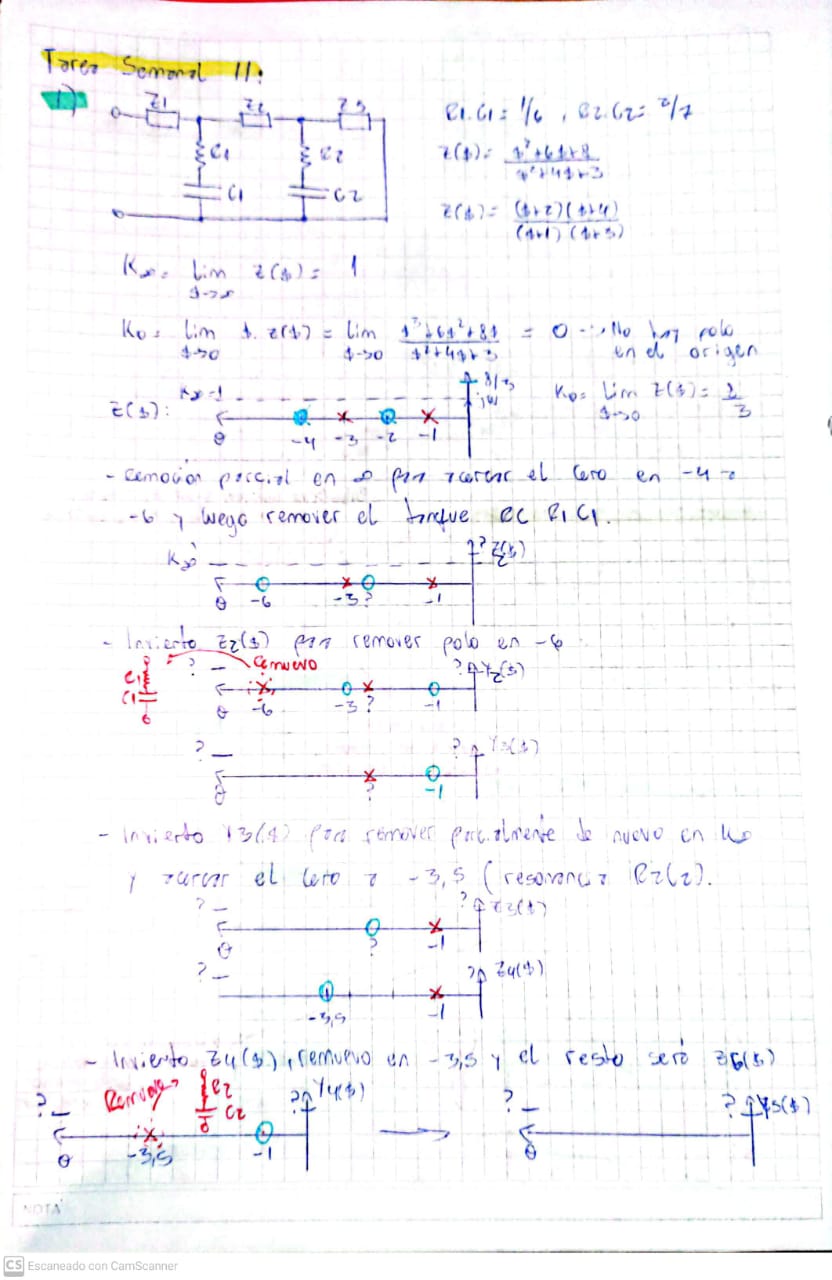 Tarea Semanal 11:
1)
Z1 Z2 Z3
R1 R2
C1 C2
R1.C1 = 1/6 , R2.C2 = 2/7
Z($) = $²+6$+8 / $²+4$+3
Z($) = ($+2)($+4) / ($+1)($+3)
K∞ = Lim $→∞ Z($) = 1
K0 = Lim $→0 $. Z($) = Lim $→0 $³+6$²+8$ / $²+4$+3 = 0 ∴ No hay polo
en el origen
Z($): K∞=1 8/3 jω K0 = Lim $→0 Z($) = 8/3
σ -4 -3 -2 -1
- Remoción parcial en ∞ para acercar el cero en -4 a
-6 y luego remover el tanque RC R1C1.
K∞' ? Z2($)
σ -6 -3 ? -1
- Invierto Z2($) para remover polo en -6
Remuevo
R1
C1
? ? Y2($)
σ -6 -3 ? -1
? ? Y3($)
σ ? -1
- Invierto Y3($) para remover parcialmente de nuevo en K∞
y acercar el cero a -3,5 (resonancia R2C2).
? ? Z3($)
σ ? -1
? ? Z4($)
-3,5 -1
- Invierto Z4($), remuevo en -3,5 y el resto será Z5($)
Remuevo R2
C2
? ? Y4($) ? ? Y5($)
σ -3,5 -1 σ
NOTA
CS Escaneado con CamScanner